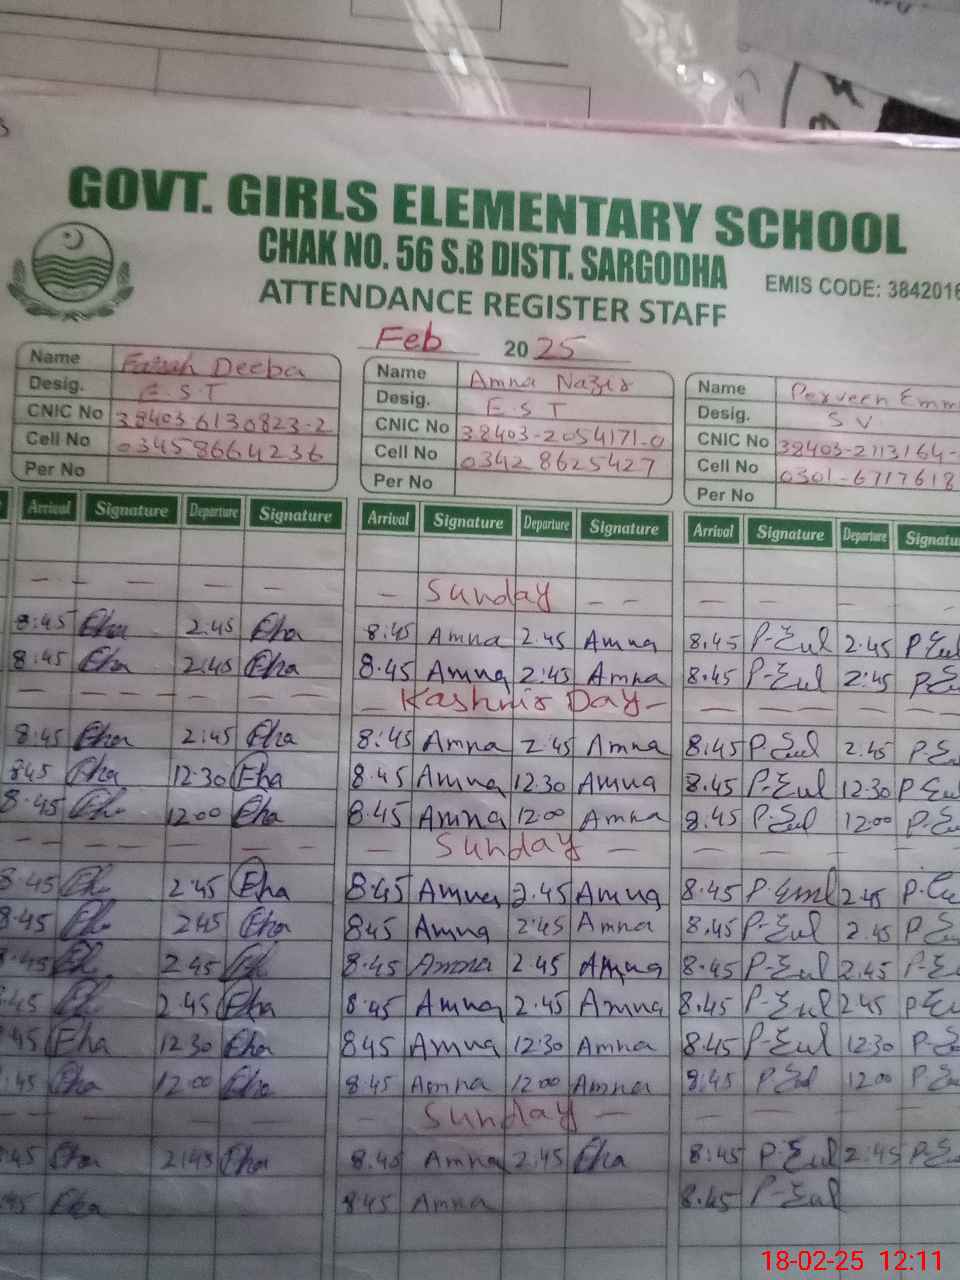 GOVT. GIRLS ELEMENTARY SCHOOL
CHAK NO. 56 S.B DISTT. SARGODHA
EMIS CODE: 3842016
ATTENDANCE REGISTER STAFF
Feb 2025
Name Farah Deeba Name Amna Nazir Name Perveen Emm
Desig. E.S.T Desig. E.S.T Desig. S.V
CNIC No 38403-6130823-2 CNIC No 38403-2054171-0 CNIC No 38403-2113164-
Cell No 03458664236 Cell No 03428625427 Cell No 0301-6717618
Per No Per No Per No
Arrival Signature Departure Signature Arrival Signature Departure Signature Arrival Signature Departure Signatu
Sunday
8:45 Eha 2:45 Eha 8:45 Amna 2.45 Amna 8.45 P-Eul 2.45 P-Eul
8:45 Eha 2:45 Eha 8.45 Amna 2:45 Amna 8.45 P-Eul 2:45
Kashmir Day
8:45 Eha 2:45 Eha 8:45 Amna 2.45 Amna 8:45 P-Eul 2.45
8:45 Eha 12:30 Eha 8.45 Amna 12.30 Amna 8.45 P-Eul 12.30 P-Eul
8.45 12:00 Eha 8.45 Amna 12:00 Amna 8.45 P-Eul 12:00
Sunday
8.45 2:45 Eha 8:45 Amna 2.45 Amna 8.45 P-Eml 2.45
8.45 2:45 Eha 8:45 Amna 2:45 Amna 8.45 P-Eul 2.45
8.45 2.45 8.45 Amna 2.45 Amna 8.45 P-Eul 2.45
:45 2.45 Eha 8.45 Amna 2.45 Amna 8.45 P-Eul 2:45
:45 Eha 12:30 Eha 8:45 Amna 12:30 Amna 8.45 P-Eul 12:30
:45 Eha 12:00 Eha 8.45 Amna 12:00 Amna 8:45 P-Eul 12:00
Sunday
:45 Eha 2:45 Eha 8.45 Amna 2.45 Eha 8:45 P-Eul 2:45
:45 Eha 8:45 Amna 8.45 P-Eul
18-02-25 12:11